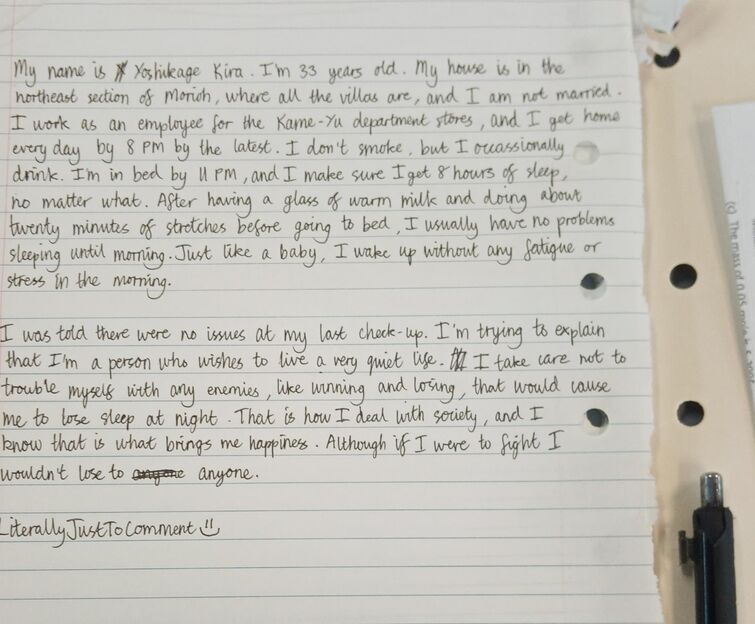 My name is Yoshikage Kira. I'm 33 years old. My house is in the
northeast section of Morioh, where all the villas are, and I am not married.
I work as an employee for the Kame-Yu department stores, and I get home
every day by 8 PM by the latest. I don't smoke, but I occassionally
drink. I'm in bed by 11 PM, and I make sure I get 8 hours of sleep,
no matter what. After having a glass of warm milk and doing about
twenty minutes of stretches before going to bed, I usually have no problems
sleeping until morning. Just like a baby, I wake up without any fatigue or
stress in the morning.
I was told there were no issues at my last check-up. I'm trying to explain
that I'm a person who wishes to live a very quiet life. I take care not to
trouble myself with any enemies, like winning and losing, that would cause
me to lose sleep at night. That is how I deal with society, and I
know that is what brings me happiness. Although if I were to fight I
wouldn't lose to anyone.
LiterallyJustToComment
(c) The mass of 0.05